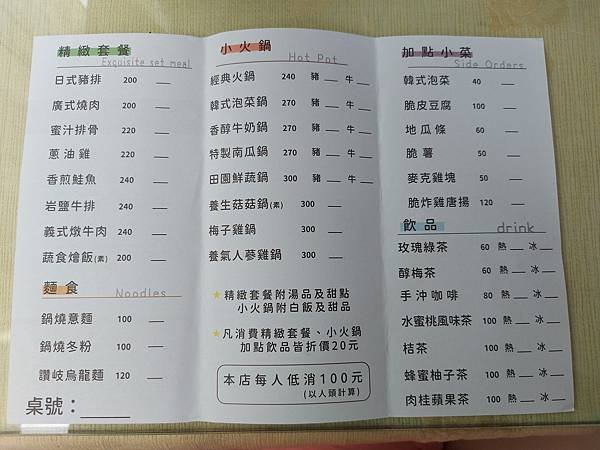 精緻套餐
Exquisite set meal
日式豬排 200 __
廣式燒肉 200 __
蜜汁排骨 220 __
蔥油雞 220 __
香煎鮭魚 240 __
岩鹽牛排 240 __
義式燉牛肉 240 __
蔬食燴飯(素) 200 __
麵食
Noodles
鍋燒意麵 100 __
鍋燒冬粉 100 __
讚岐烏龍麵 120 __
桌號：____
小火鍋
Hot Pot
經典火鍋 240 豬__ 牛__
韓式泡菜鍋 270 豬__ 牛__
香醇牛奶鍋 270 豬__ 牛__
特製南瓜鍋 270 豬__ 牛__
田園鮮蔬鍋 300 豬__ 牛__
養生菇菇鍋(素) 300 __
梅子雞鍋 300 __
養氣人蔘雞鍋 300 __
★精緻套餐附湯品及甜點
小火鍋附白飯及甜品
★凡消費精緻套餐、小火鍋
加點飲品皆折價20元
本店每人低消100元
(以人頭計算)
加點小菜
Side Orders
韓式泡菜 40 __
脆皮豆腐 100 __
地瓜條 60 __
脆薯 50 __
麥克雞塊 50 __
脆炸雞唐揚 120 __
飲品
drink
玫瑰綠茶 60 熱__ 冰__
醇梅茶 60 熱__ 冰__
手沖咖啡 80 熱__ 冰__
水蜜桃風味茶 100 熱__ 冰__
桔茶 100 熱__ 冰__
蜂蜜柚子茶 100 熱__ 冰__
肉桂蘋果茶 100 熱__ 冰__